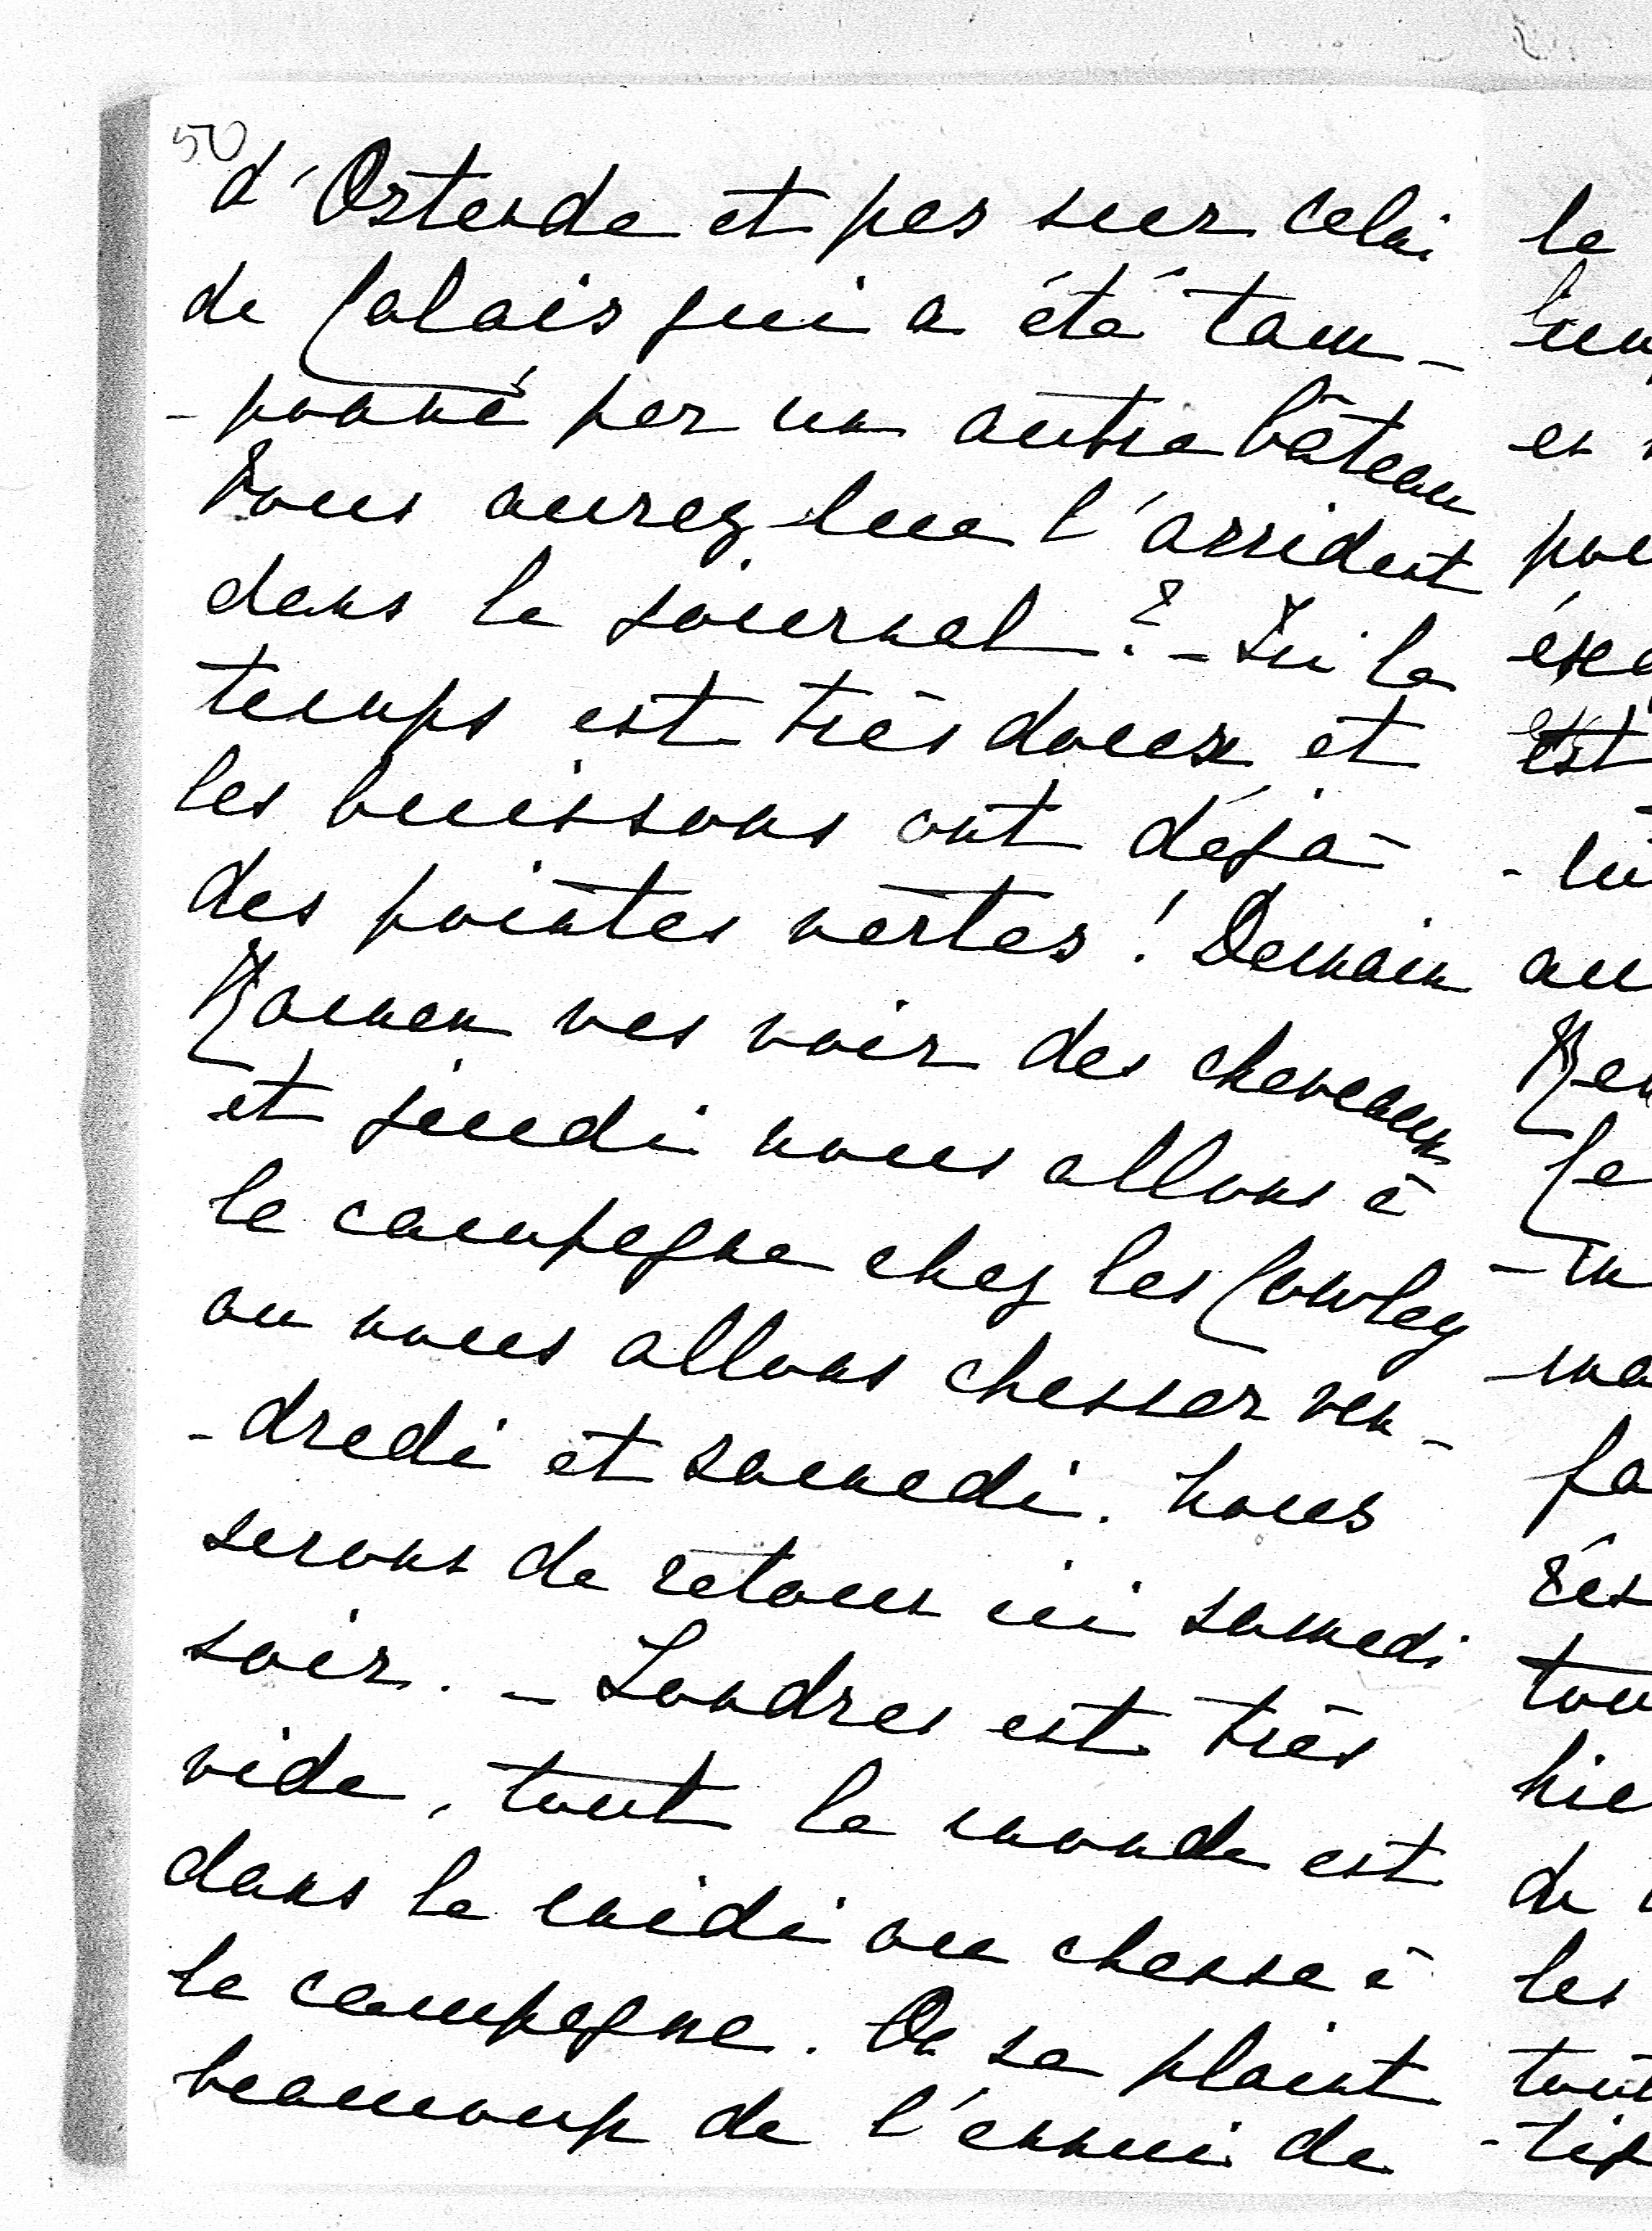 50
d'Ostende et pas sur celui
de Calais qui a été tam-
-ponné par un autre bâteau
Vous aurez lue l'accident
dans le journal? - Ici le
temps est très doux et
les buissons ont déjà
des pointes vertes! Demain
vas voir des chevaux
et jeudi nous allons à
la campagne chez les Cowley
ou nous allons chasser ven-
-dredi et samedi. Nous
serons de retour ici samedi
soir. - Londres est très
vide, tout le monde est
dans le midi ou chasse à
la campagne. On se plaint
beaucoup de l'ennui de